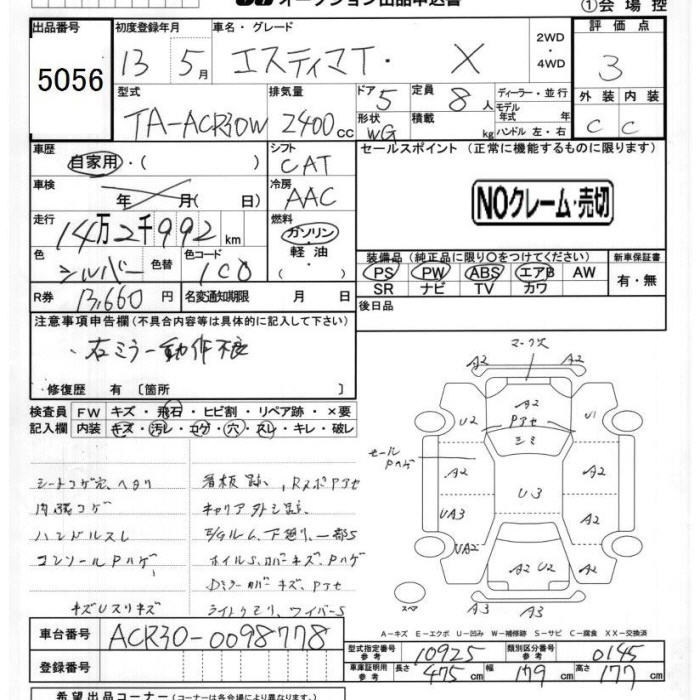 オークション出品申込書
①会場控
出品番号 初度登録年月 車名・グレード 2WD・4WD 評価点
5056 13 5月 エスティマT・X 3
型式 排気量 ドア 5 定員 8人 ディーラー・並行 外装 内装
TA-ACR30W 2400cc 形状 WG 積載 kg モデル年式 年式 ハンドル 左・右 C C
車歴 自家用・( ) シフト CAT セールスポイント (正常に機能するものに限ります)
車検 年 月( 日) 冷房 AAC NOクレーム・売切
走行 14万2千992km 燃料 ガソリン・軽油・( )
色 シルバー 色替 色コード 1C0 装備品 (純正品に限り〇をつけてください) 新車保証書
PS PW ABS エアB AW 有・無
SR ナビ TV カワ
R券 13,660円 名変通知期限 月 日 後日品
注意事項申告欄 (不具合内容等は具体的に記入して下さい)
・右ミラー動作不良
・修復歴 有 〔箇所 〕
検査員 FW キズ・飛石・ヒビ割・リペア跡・×要
記入欄 内装 キズ・汚レ・コゲ・穴・スレ・キレ・破レ
シートコゲ穴、ヘタリ 看板跡、RスポPアセ
内張コゲ キャリア外シ跡
ハンドルスレ E/Gルーム、下廻り、一部S
コンソールPハゲ ホイルS、カバーキズ、Pハゲ
Dミラーカバーキズ、Pアセ
キズUスリキズ ライトクモリ、ワイパーS
A2 マーク欠 A2
U2 A2 Pアセ U1
シミ
セールPハゲ
A2 A2
UA3 U3 A2
UA2 A2 U2 A2
スペア A3 A3
A-キズ E-エクボ U-凹み W-補修跡 S-サビ C-腐食 XX-交換済
車台番号 ACR30-0098778
登録番号
型式指定番号 参考 10925 類別区分番号 参考 0145
車庫証明用 参考 長さ 475cm 幅 179cm 高さ 177cm
希望出品コーナー (コーナーは各会場により異なります)